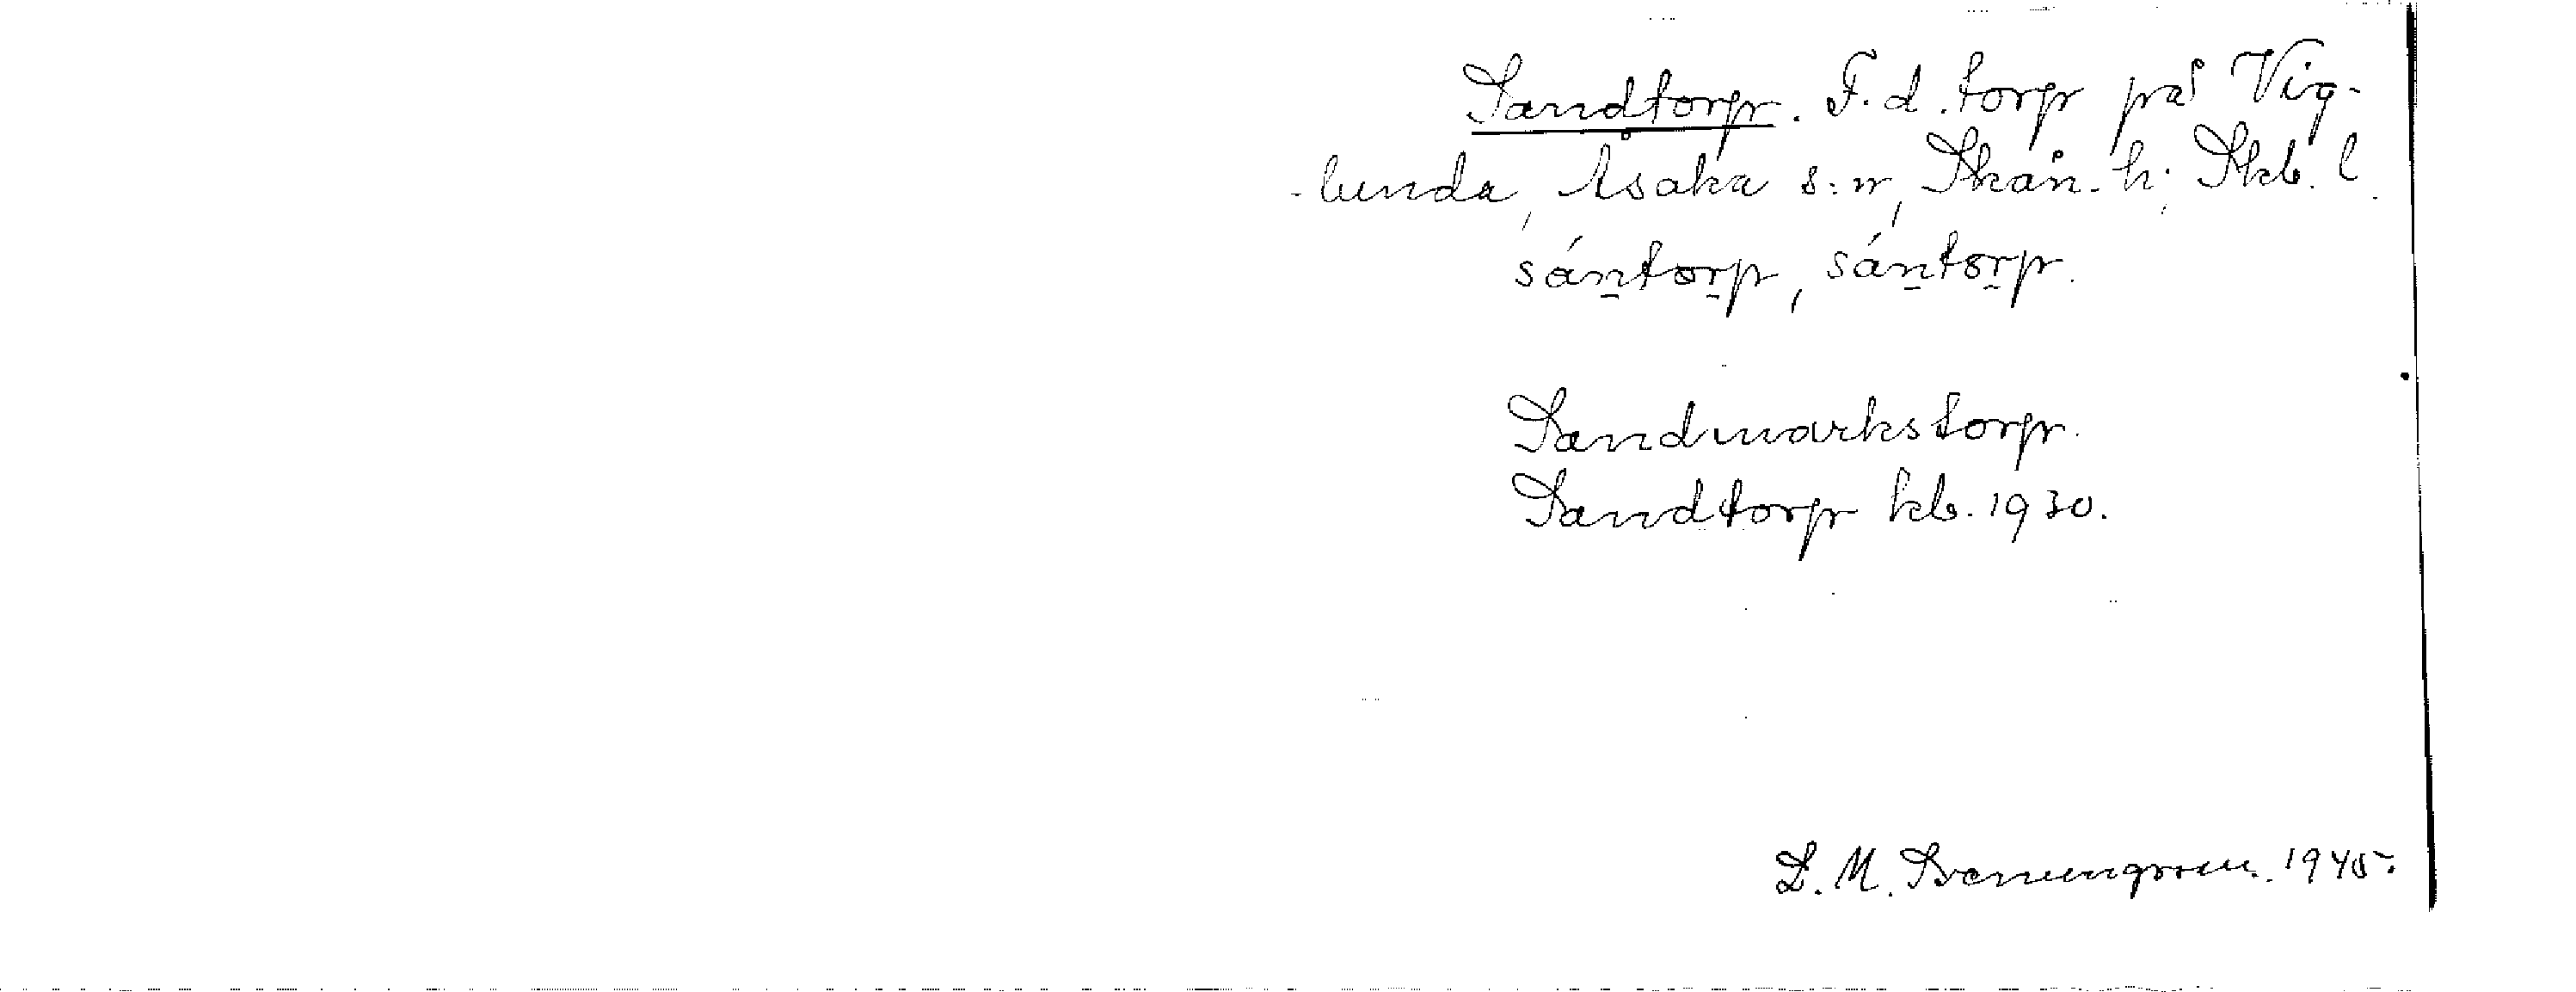 Sandtorp. F.d. torp på Vig-
-lunda, Åsaka s:n, Skån. h. Skb. l.
sántorp, sántorp.
Sandmarkstorp.
Sandtorp kb. 1930.
L. M. Svenungsson. 1945.